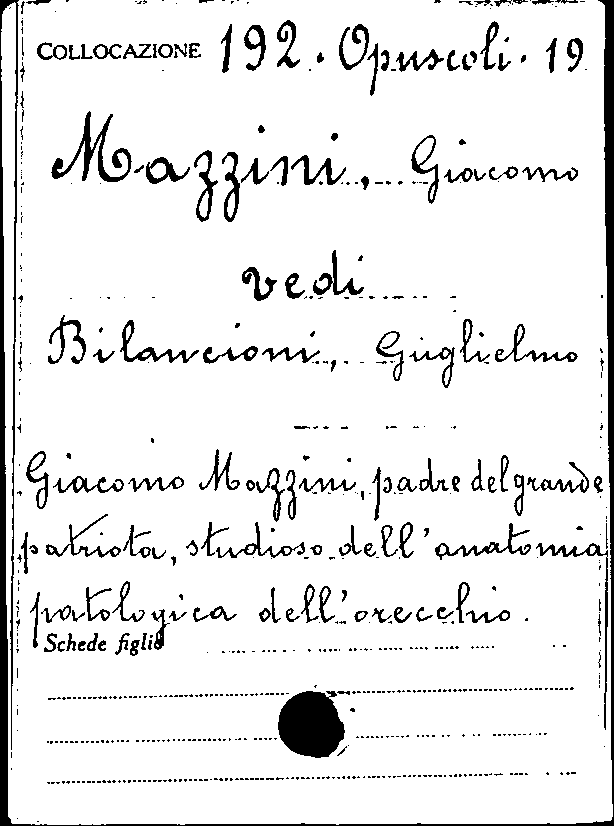 COLLOCAZIONE 192. Opuscoli. 19
Mazzini, Giacomo
vedi
Bilancioni, Guglielmo
Giacomo Mazzini, padre del grande
patriota, studioso dell'anatomia
patologica dell'orecchio.
Schede figlie